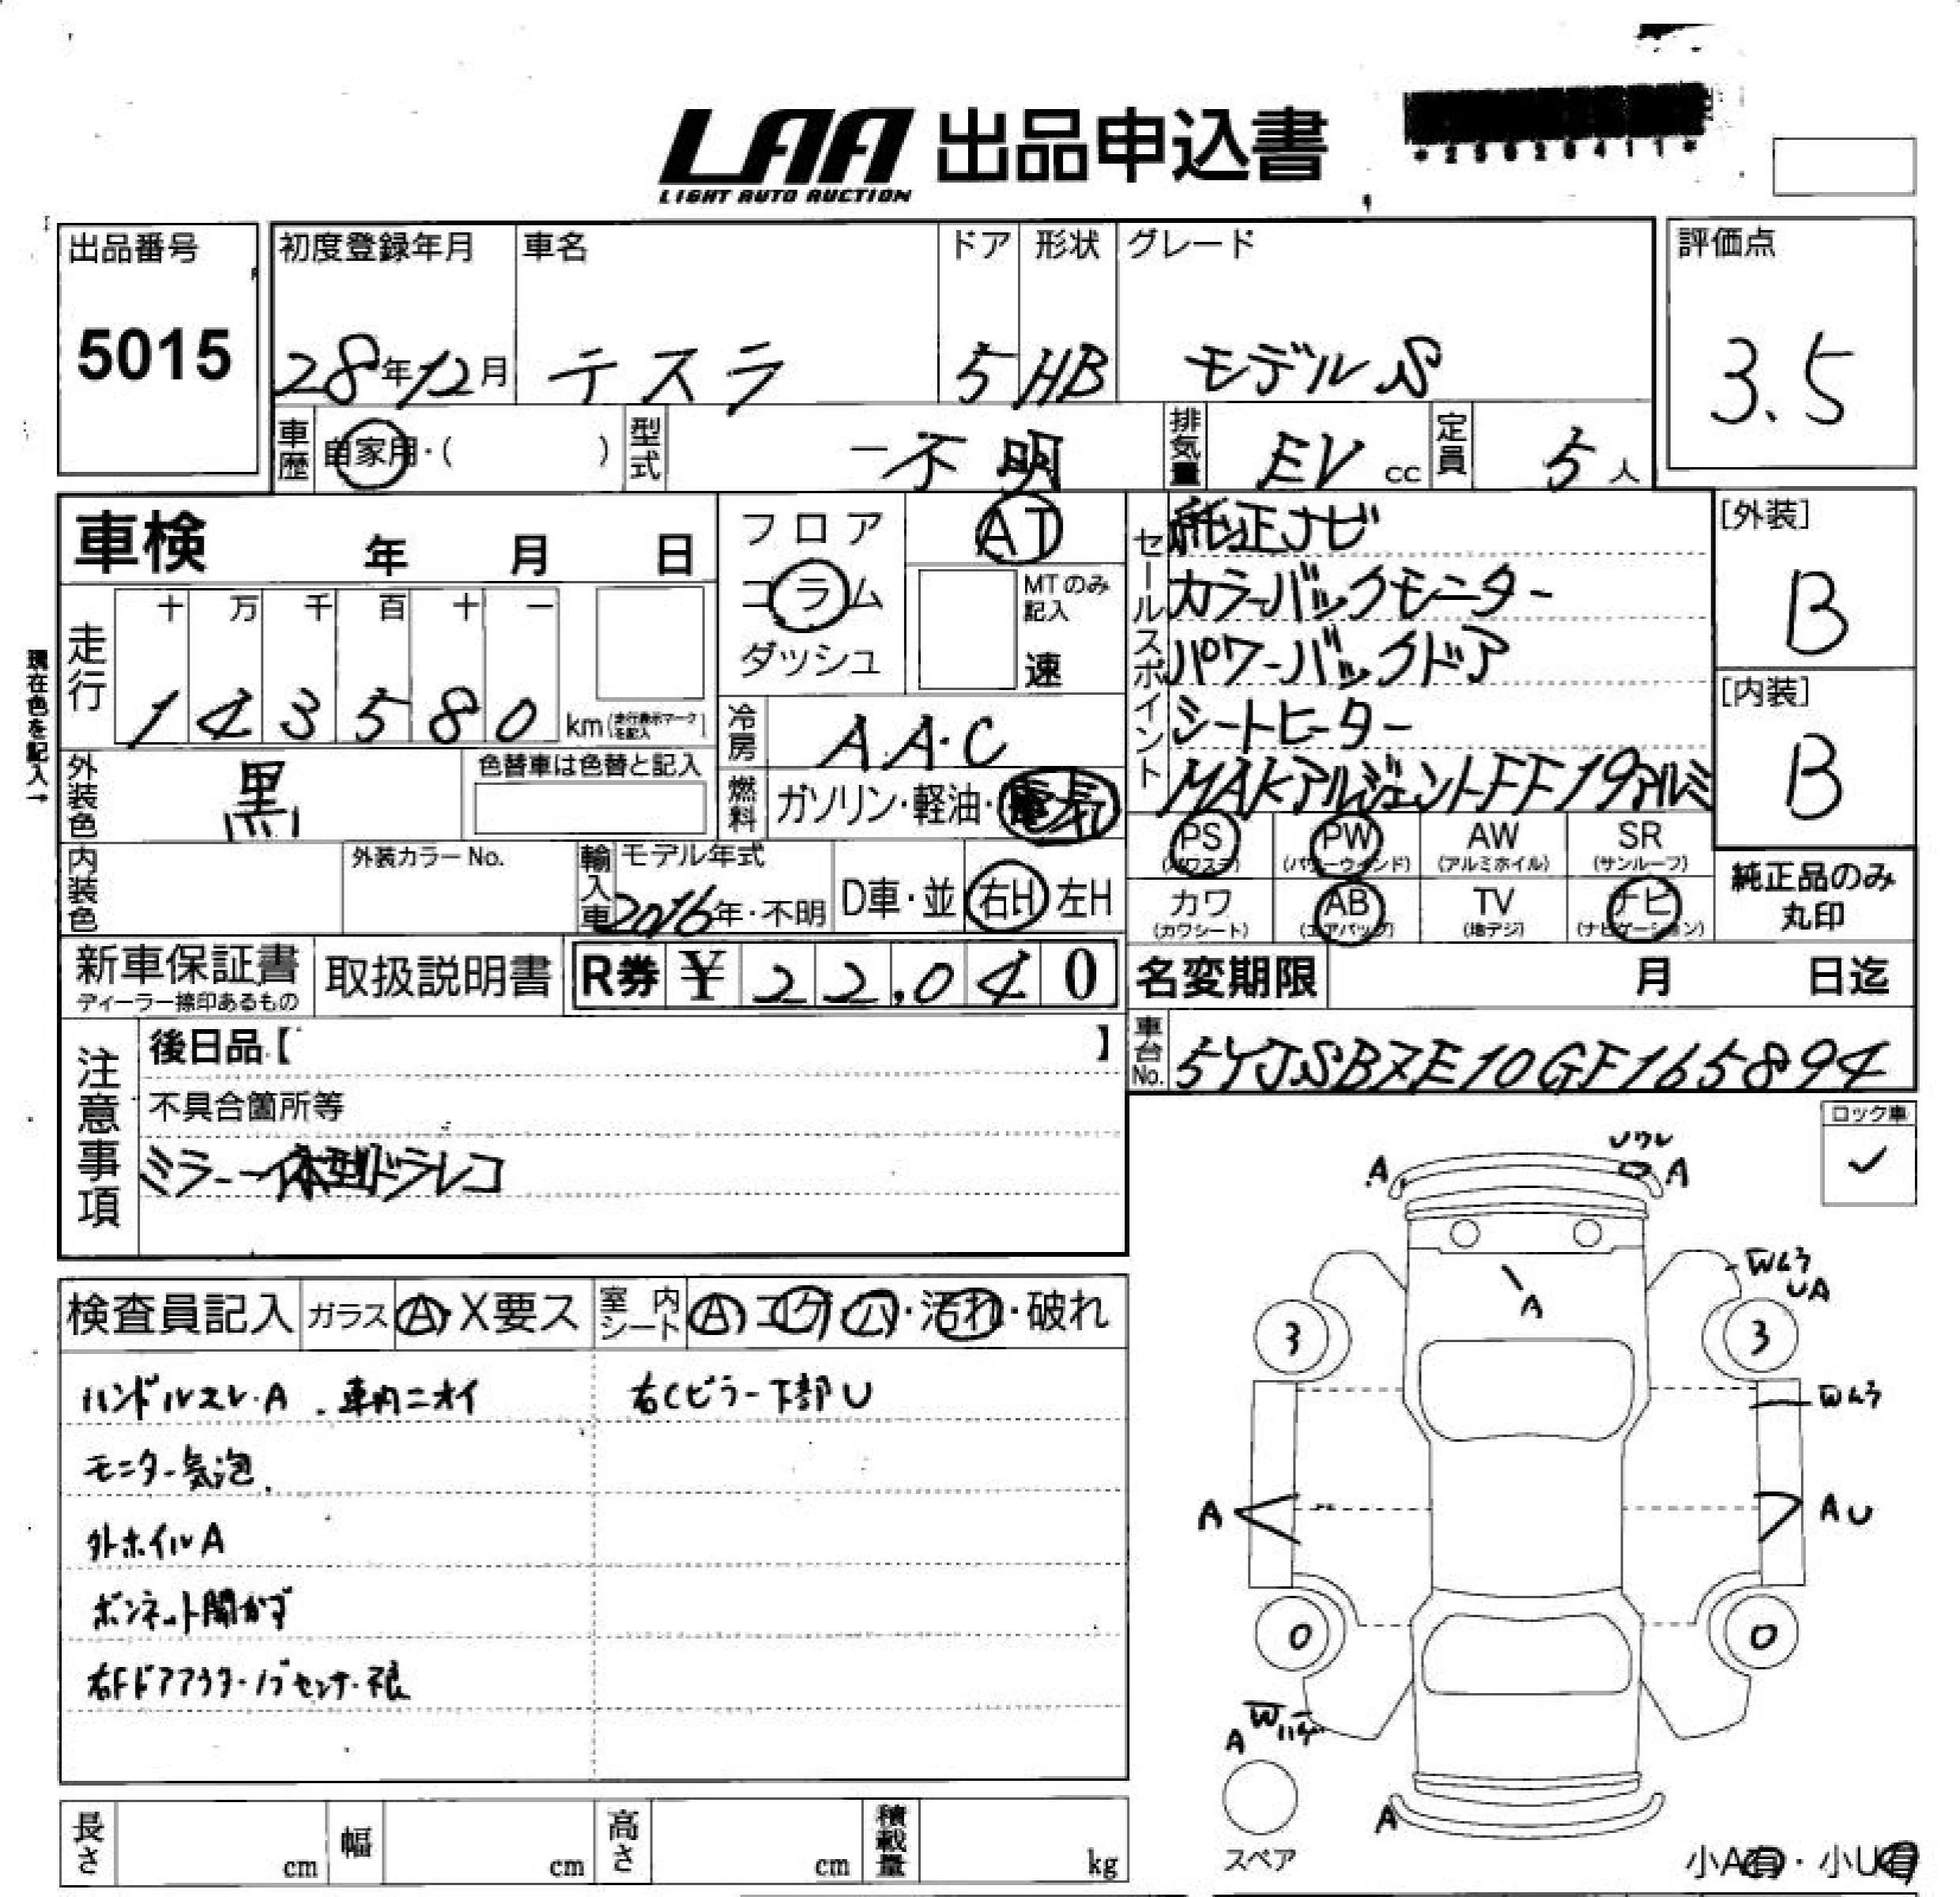 LAA 出品申込書
LIGHT AUTO AUCTION
*25026411*
出品番号
5015
初度登録年月
28年12月
車名
テスラ
ドア
5
形状
HB
グレード
モデルS
評価点
3.5
車歴
自家用・( )
型式
ー不明
排気量
EV cc
定員
5人
車検 年 月 日
フロア
コラム
ダッシュ
AT
MTのみ記入
速
現在色を記入→
走行
十 万 千 百 十 一
1 4 3 5 8 0 km(走行表示マークを記入)
冷房
A.A.C
外装色
黒
色替車は色替と記入
燃料
ガソリン・軽油・電気
セールスポイント
純正ナビ
カラーバックモニター
パワーバックドア
シートヒーター
MAKアルジェントFF19アルミ
[外装]
B
[内装]
B
内装色
外装カラーNo.
輸入車
モデル年式
2016年・不明
D車・並
右H 左H
PS (パワステ)
PW (パワーウィンド)
AW (アルミホイル)
SR (サンルーフ)
カワ (カワシート)
AB (エアバッグ)
TV (地デジ)
ナビ (ナビゲーション)
純正品のみ
丸印
新車保証書
ディーラー捺印あるもの
取扱説明書
R券 ¥ 22,040
名変期限 月 日迄
車台No.
5YJSB7E10GF165894
注意事項
後日品【 】
不具合箇所等
ミラー一体型ドラレコ
ロック車
✓
検査員記入
ガラス A・X要ス
室内シート A・コゲ・穴・汚れ・破れ
ハンドルスレ・A.車内ニオイ
右Cピラー下部U
モニター気泡
外ホイルA
ボンネット開かず
右FドアアウターノブセンサーR
A A
A
W43
UA
3 3
W43
A AU
0 0
A
A
スペア
小A有・小U有
長さ cm
幅 cm
高さ cm
積載量 kg